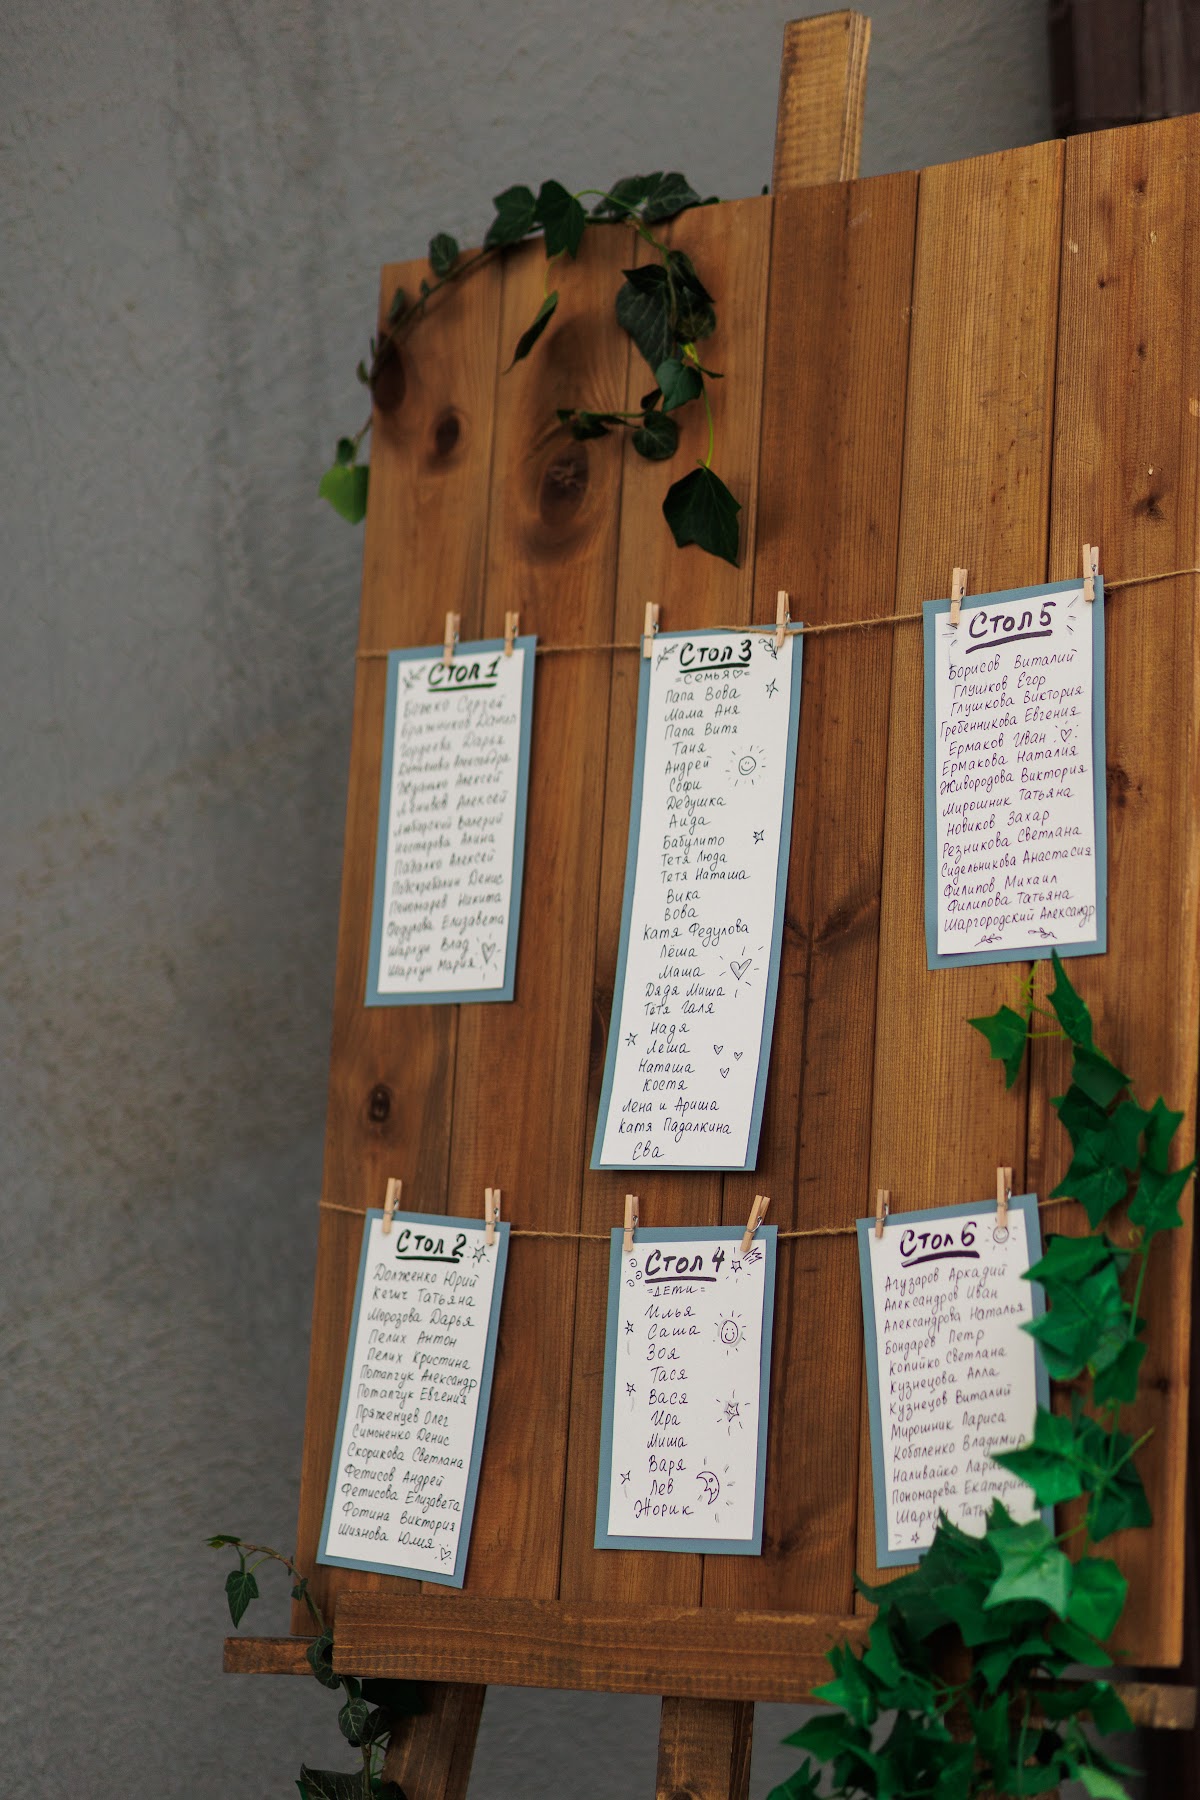 Стол 1
Божко Сергей
Бражников Данил
Гордеева Дарья
Александра
Жданко Алексей
Ленивов Алексей
Любарский Валерий
Нестерова Алина
Падалко Алексей
Подскребалин Денис
Пономарев Никита
Федулова Елизавета
Шаркун Влад
Шаркун Мария
Стол 3
=Семья♡=
Папа Вова
Мама Аня
Папа Витя
Таня
Андрей
Софи
Дедушка
Аида
Бабулито
Тетя Люда
Тетя Наташа
Вика
Вова
Катя Федулова
Лёша
Маша
Дядя Миша
Тётя Галя
Надя
Леша
Наташа
Костя
Лена и Ариша
Катя Падалкина
Ева
Стол 5
Борисов Виталий
Глушков Егор
Глушкова Виктория
Гребенникова Евгения
Ермаков Иван
Ермакова Наталия
Живородова Виктория
Мирошник Татьяна
Новиков Захар
Резникова Светлана
Сидельникова Анастасия
Филипов Михаил
Филипова Татьяна
Шаргородский Александр
Стол 2
Долженко Юрий
Кегич Татьяна
Морозова Дарья
Пелих Антон
Пелих Кристина
Потапчук Александр
Потапчук Евгения
Пряженцев Олег
Симоненко Денис
Скорикова Светлана
Фетисов Андрей
Фетисова Елизавета
Фотина Виктория
Шиянова Юлия
Стол 4
=Дети=
Илья
Саша
Зоя
Тася
Вася
Ира
Миша
Варя
Лев
Жорик
Стол 6
Агузаров Аркадий
Александров Иван
Александрова Наталья
Бондарев Петр
Копийко Светлана
Кузнецова Алла
Кузнецов Виталий
Мирошник Лариса
Кобыленко Владимир
Наливайко
Пономарева Екатерина
Шаркун